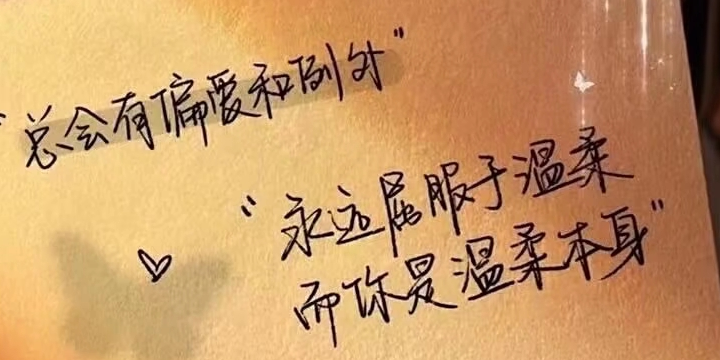 "总会有偏爱和例外"
"永远屈服于温柔
而你是温柔本身"